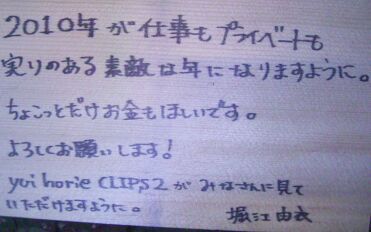 2010年が仕事もプライベートも
実りのある素敵な年になりますように。
ちょこっとだけお金もほしいです。
よろしくお願いします!
yui horie CLIPS2がみなさんに見て
いただけますように。
堀江由衣